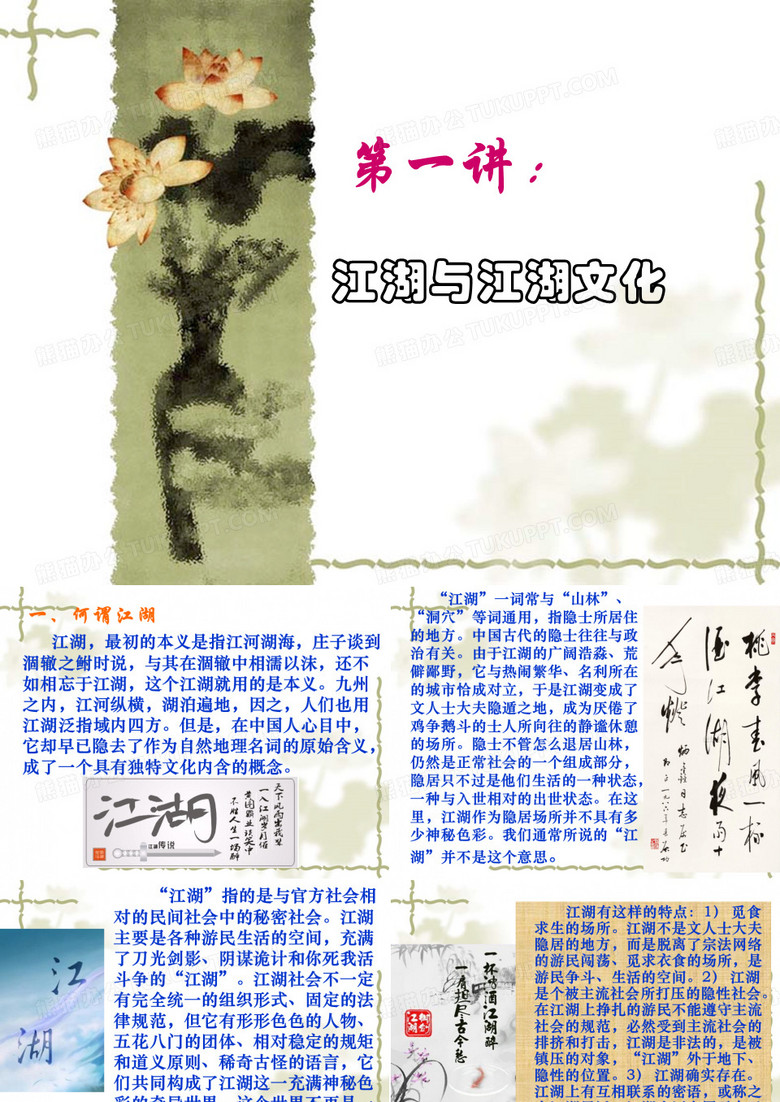 第一讲：
江湖与江湖文化
一、何谓江湖
江湖，最初的本义是指江河湖海，庄子谈到
涸辙之鲋时说，与其在涸辙中相濡以沫，还不
如相忘于江湖，这个江湖就用的是本义。九州
之内，江河纵横，湖泊遍地，因之，人们也用
江湖泛指域内四方。但是，在中国人心目中，
它却早已隐去了作为自然地理名词的原始含义，
成了一个具有独特文化内含的概念。
江湖
江湖传说
天下风云出我辈
一入江湖岁月催
皇图霸业谈笑中
不胜人生一场醉
“江湖”一词常与“山林”、
“洞穴”等词通用，指隐士所居住
的地方。中国古代的隐士往往与政
治有关。由于江湖的广阔浩淼、荒
僻鄙野，它与热闹繁华、名利所在
的城市恰成对立，于是江湖变成了
文人士大夫隐遁之地，成为厌倦了
鸡争鹅斗的士人所向往的静谧休憩
的场所。隐士不管怎么退居山林，
仍然是正常社会的一个组成部分，
隐居只不过是他们生活的一种状态，
一种与入世相对的出世状态。在这
里，江湖作为隐居场所并不具有多
少神秘色彩。我们通常所说的“江
湖”并不是这个意思。
桃李春风一杯
酒江湖夜雨十
年灯
“江湖”指的是与官方社会相
对的民间社会中的秘密社会。江湖
主要是各种游民生活的空间，充满
了刀光剑影、阴谋诡计和你死我活
斗争的“江湖”。江湖社会不一定
有完全统一的组织形式、固定的法
律规范，但它有形形色色的人物、
五花八门的团体、相对稳定的规矩
和道义原则、稀奇古怪的语言，它
们共同构成了江湖这一充满神秘色
彩的奇异世界。这个世界不再是一
江
湖
江湖有这样的特点：1） 觅食
求生的场所。江湖不是文人士大夫
隐居的地方，而是脱离了宗法网络
的游民闯荡、觅求衣食的场所，是
游民争斗、生活的空间。2） 江湖
是个被主流社会所打压的隐性社会。
在江湖上挣扎的游民不能遵守主流
社会的规范，必然受到主流社会的
排挤和打击，江湖是非法的，是被
镇压的对象，“江湖”外于地下、
隐性的位置。3） 江湖确实存在。
江湖上有互相联系的密语，或称之
一杯浊酒江湖醉
一肩担尽古今愁
熊猫办公 TUKUPPT.COM